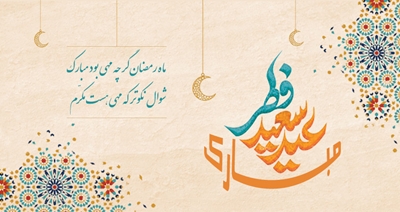 ماه رمضان گرچه مهی بود مبارک
شوال نکوتر که مهی هست مکرم
عید سعید فطر
مبارک